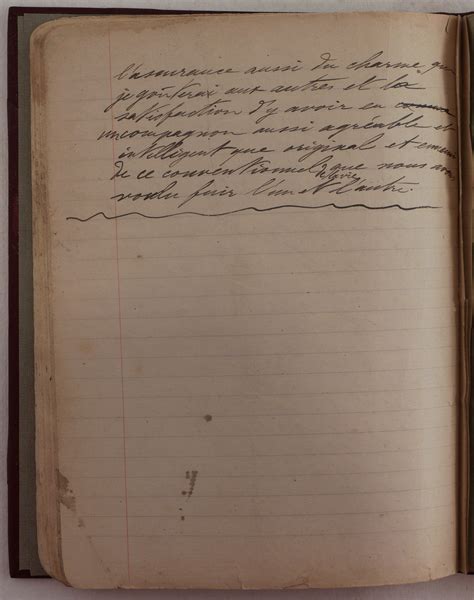 l'assurance aussi du charme que
je goûterai aux autres et la
satisfaction d'y avoir eu
un compagnon aussi agréable et
intelligent que original et ennemi
de ce conventionnel que nous avons
de la vie
voulu fuir l'un et l'autre.